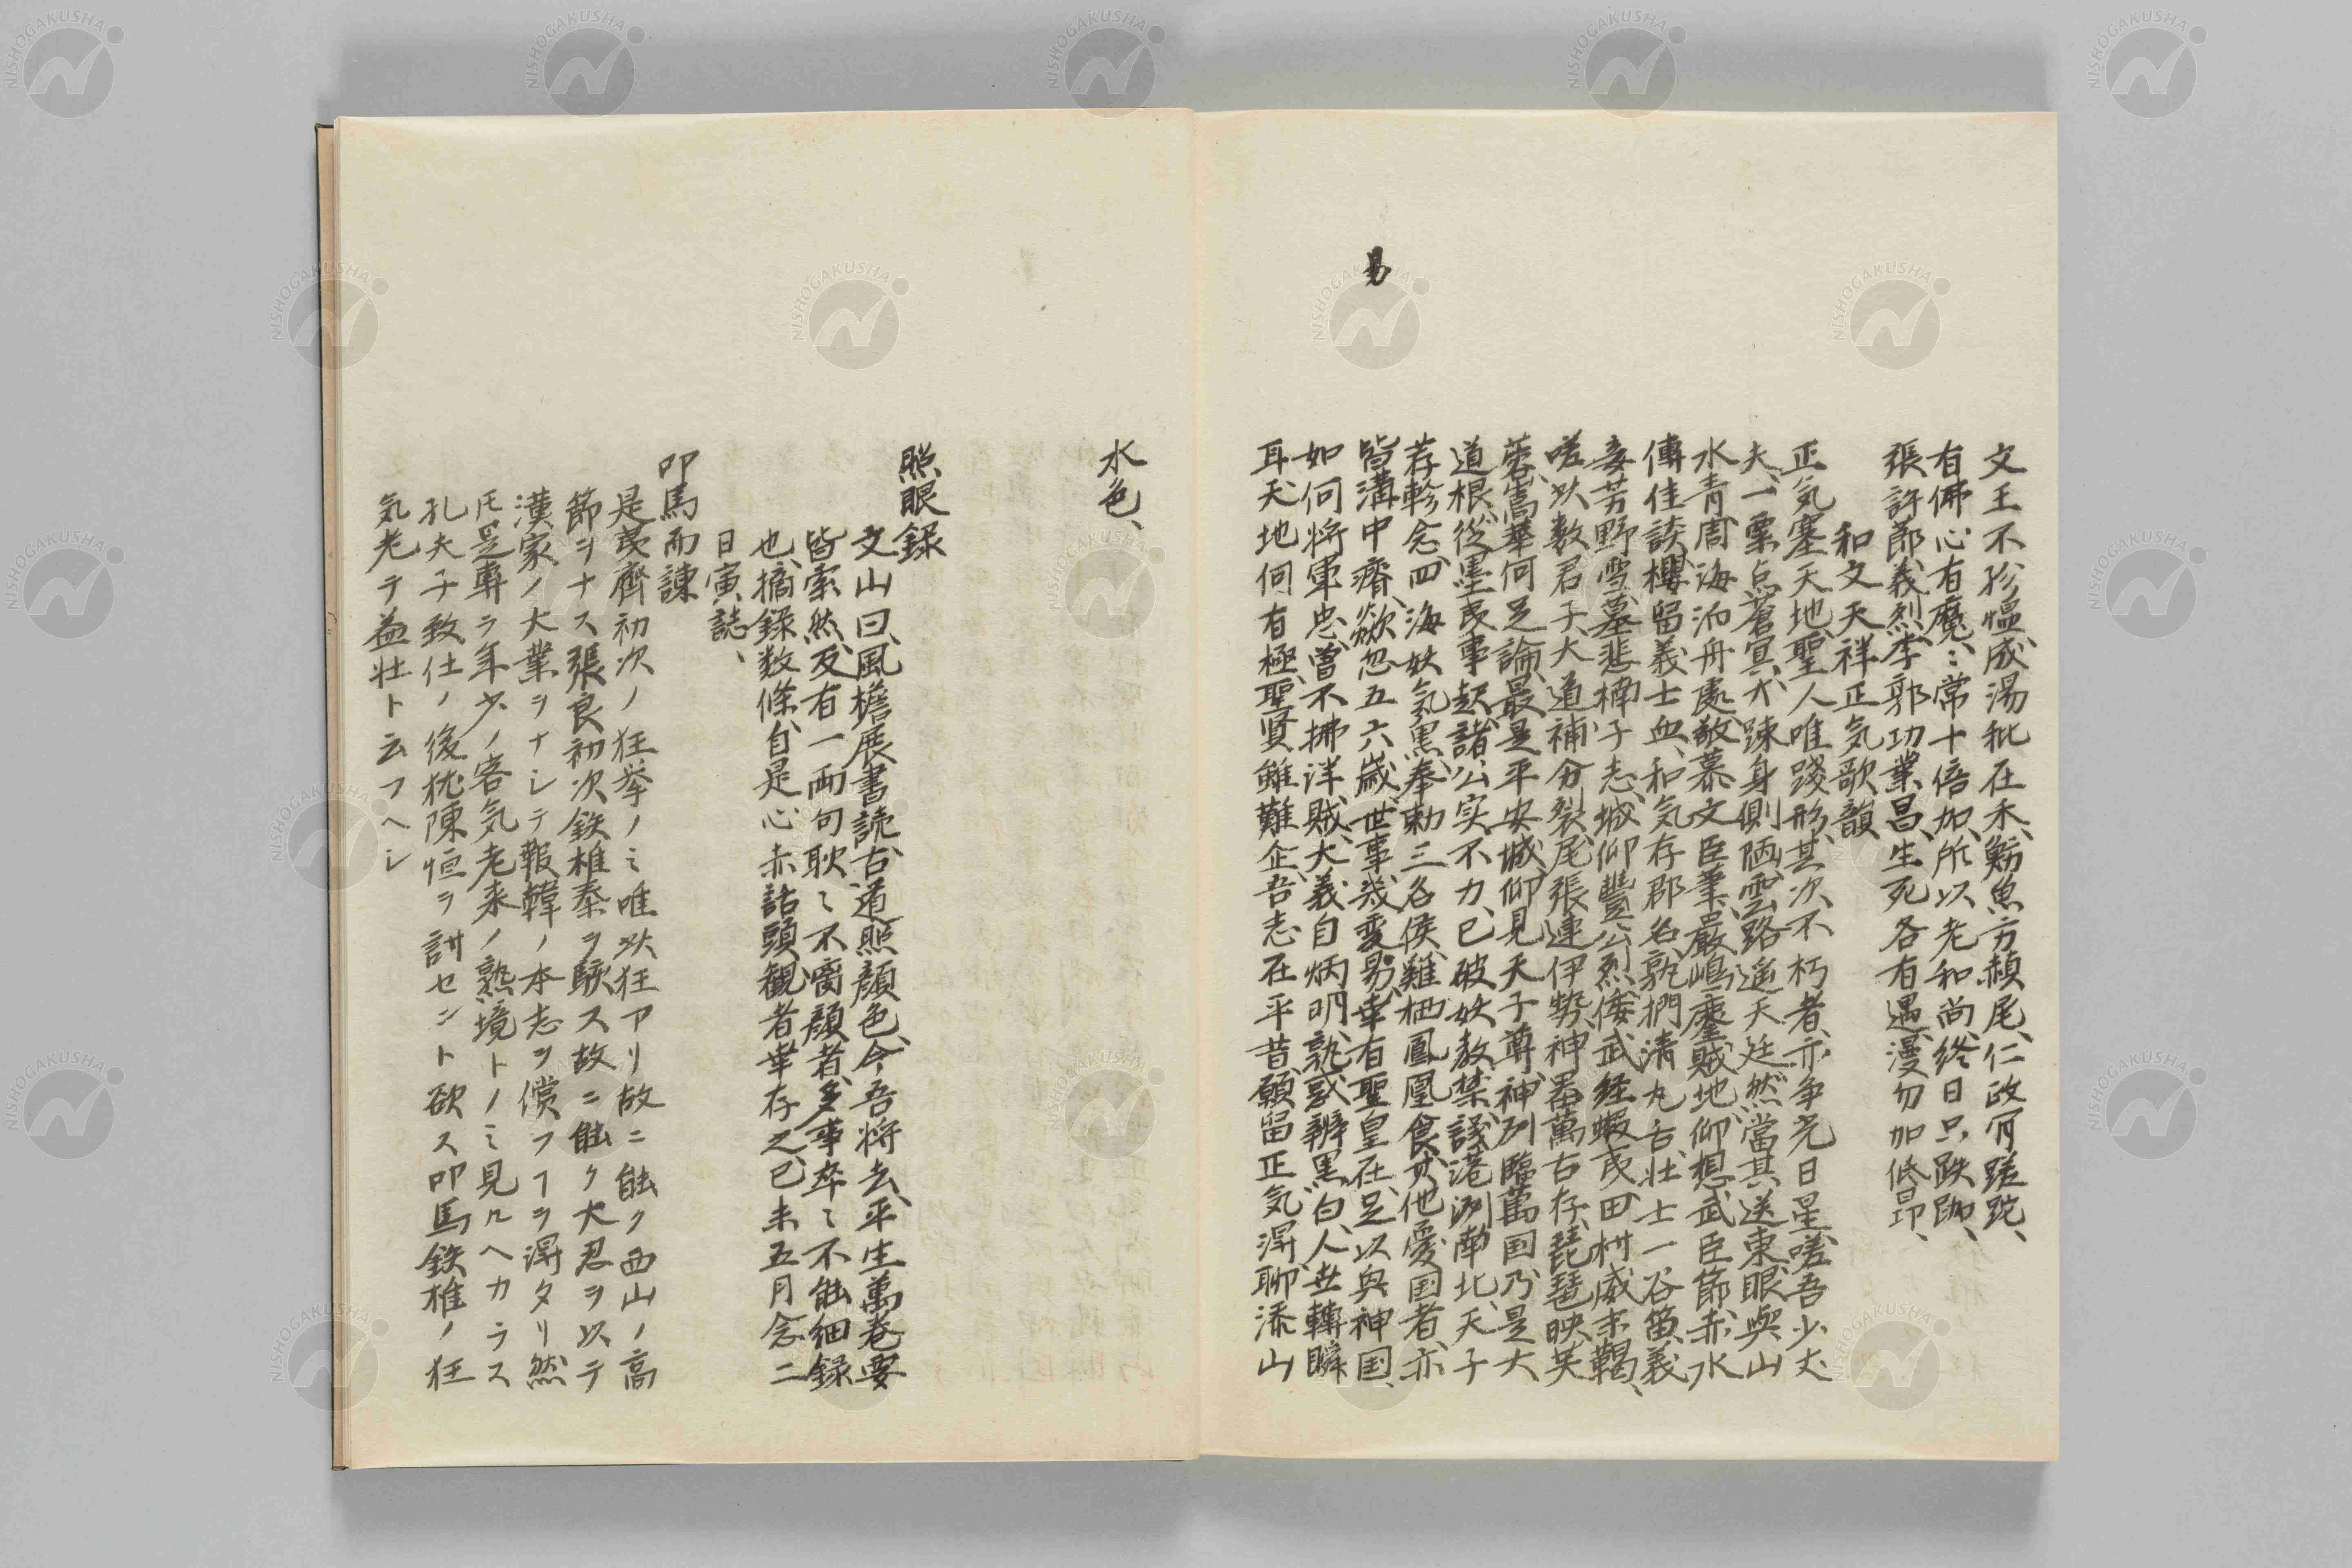 易
文王不殄慍、成湯秕在禾、魴魚方赬尾、仁政何蹉跎、
有佛心有魔、〻常十倍加、所以老和尚、終日只趺跏、
張許節義烈、李郭功業昌、生死各有遇、漫勿加低昂、
和文天祥正気歌韻
正気塞天地、聖人唯践形、其次不朽者、亦争光日星、嗟吾少丈
夫、一粟点蒼冥、才疎身側陋、雲路遥天廷、然當其送東、眼與山
水青、周海泊舟處、敬慕文臣筆、嚴嶋鏖賊地、仰想武臣節、赤水
傳佳談、櫻留義士血、和気存郡名、孰捫清丸舌、壮士一谷笛、義
妾芳野雪、墓悲楠子志、城仰豐公烈、倭武経蝦夷、田村威靺鞨、
嗟以数君子、大道補分裂、尾張連伊勢、神器萬古存、琵琶映芙
蓉、嵩華何足論、最是平安城、仰見天子尊、神州臨萬国、乃是大
道根、従墨夷事起、諸公実不力、已破妖教禁、議港洲南北、天子
荐軫念、四海妖気黒、奉勅三名侯、雞栖鳳凰食、其他愛国者、亦
皆溝中瘠、歘忽五六歳、世事幾変易、幸有聖皇在、足以興神国、
如何将軍忠、曽不拂洋賊、大義自炳明、孰惑辨黒白、人世轉瞬
耳、天地何有極、聖賢雖難企、吾志在平昔、願留正気得、聊添山
水色、
照眼録
文山曰、風檐展書読、古道照顔色、今吾将去、平生萬巻要
皆索然、反有一両句耿〻不离顔者、多事卒〻不能細録
也、摘録数條、自是心赤話頭、観者幸存之、己未五月念二
日寅誌、
叩馬而諫
是夷齊初次ノ狂挙ノミ唯此狂アリ故ニ能ク西山ノ高
節ヲナス張良初次鉄椎秦ヲ駭ス故ニ能ク大忍ヲ以テ
漢家ノ大業ヲナシテ報韓ノ本志ヲ償フヿヲ得タリ然
𪜈是専ラ年少ノ客気老来ノ熟境トノミ見ルヘカラス
孔夫子致仕ノ後猶陳恒ヲ討セント欲ス叩馬鉄椎ノ狂
気老テ益壮ト云フヘシ